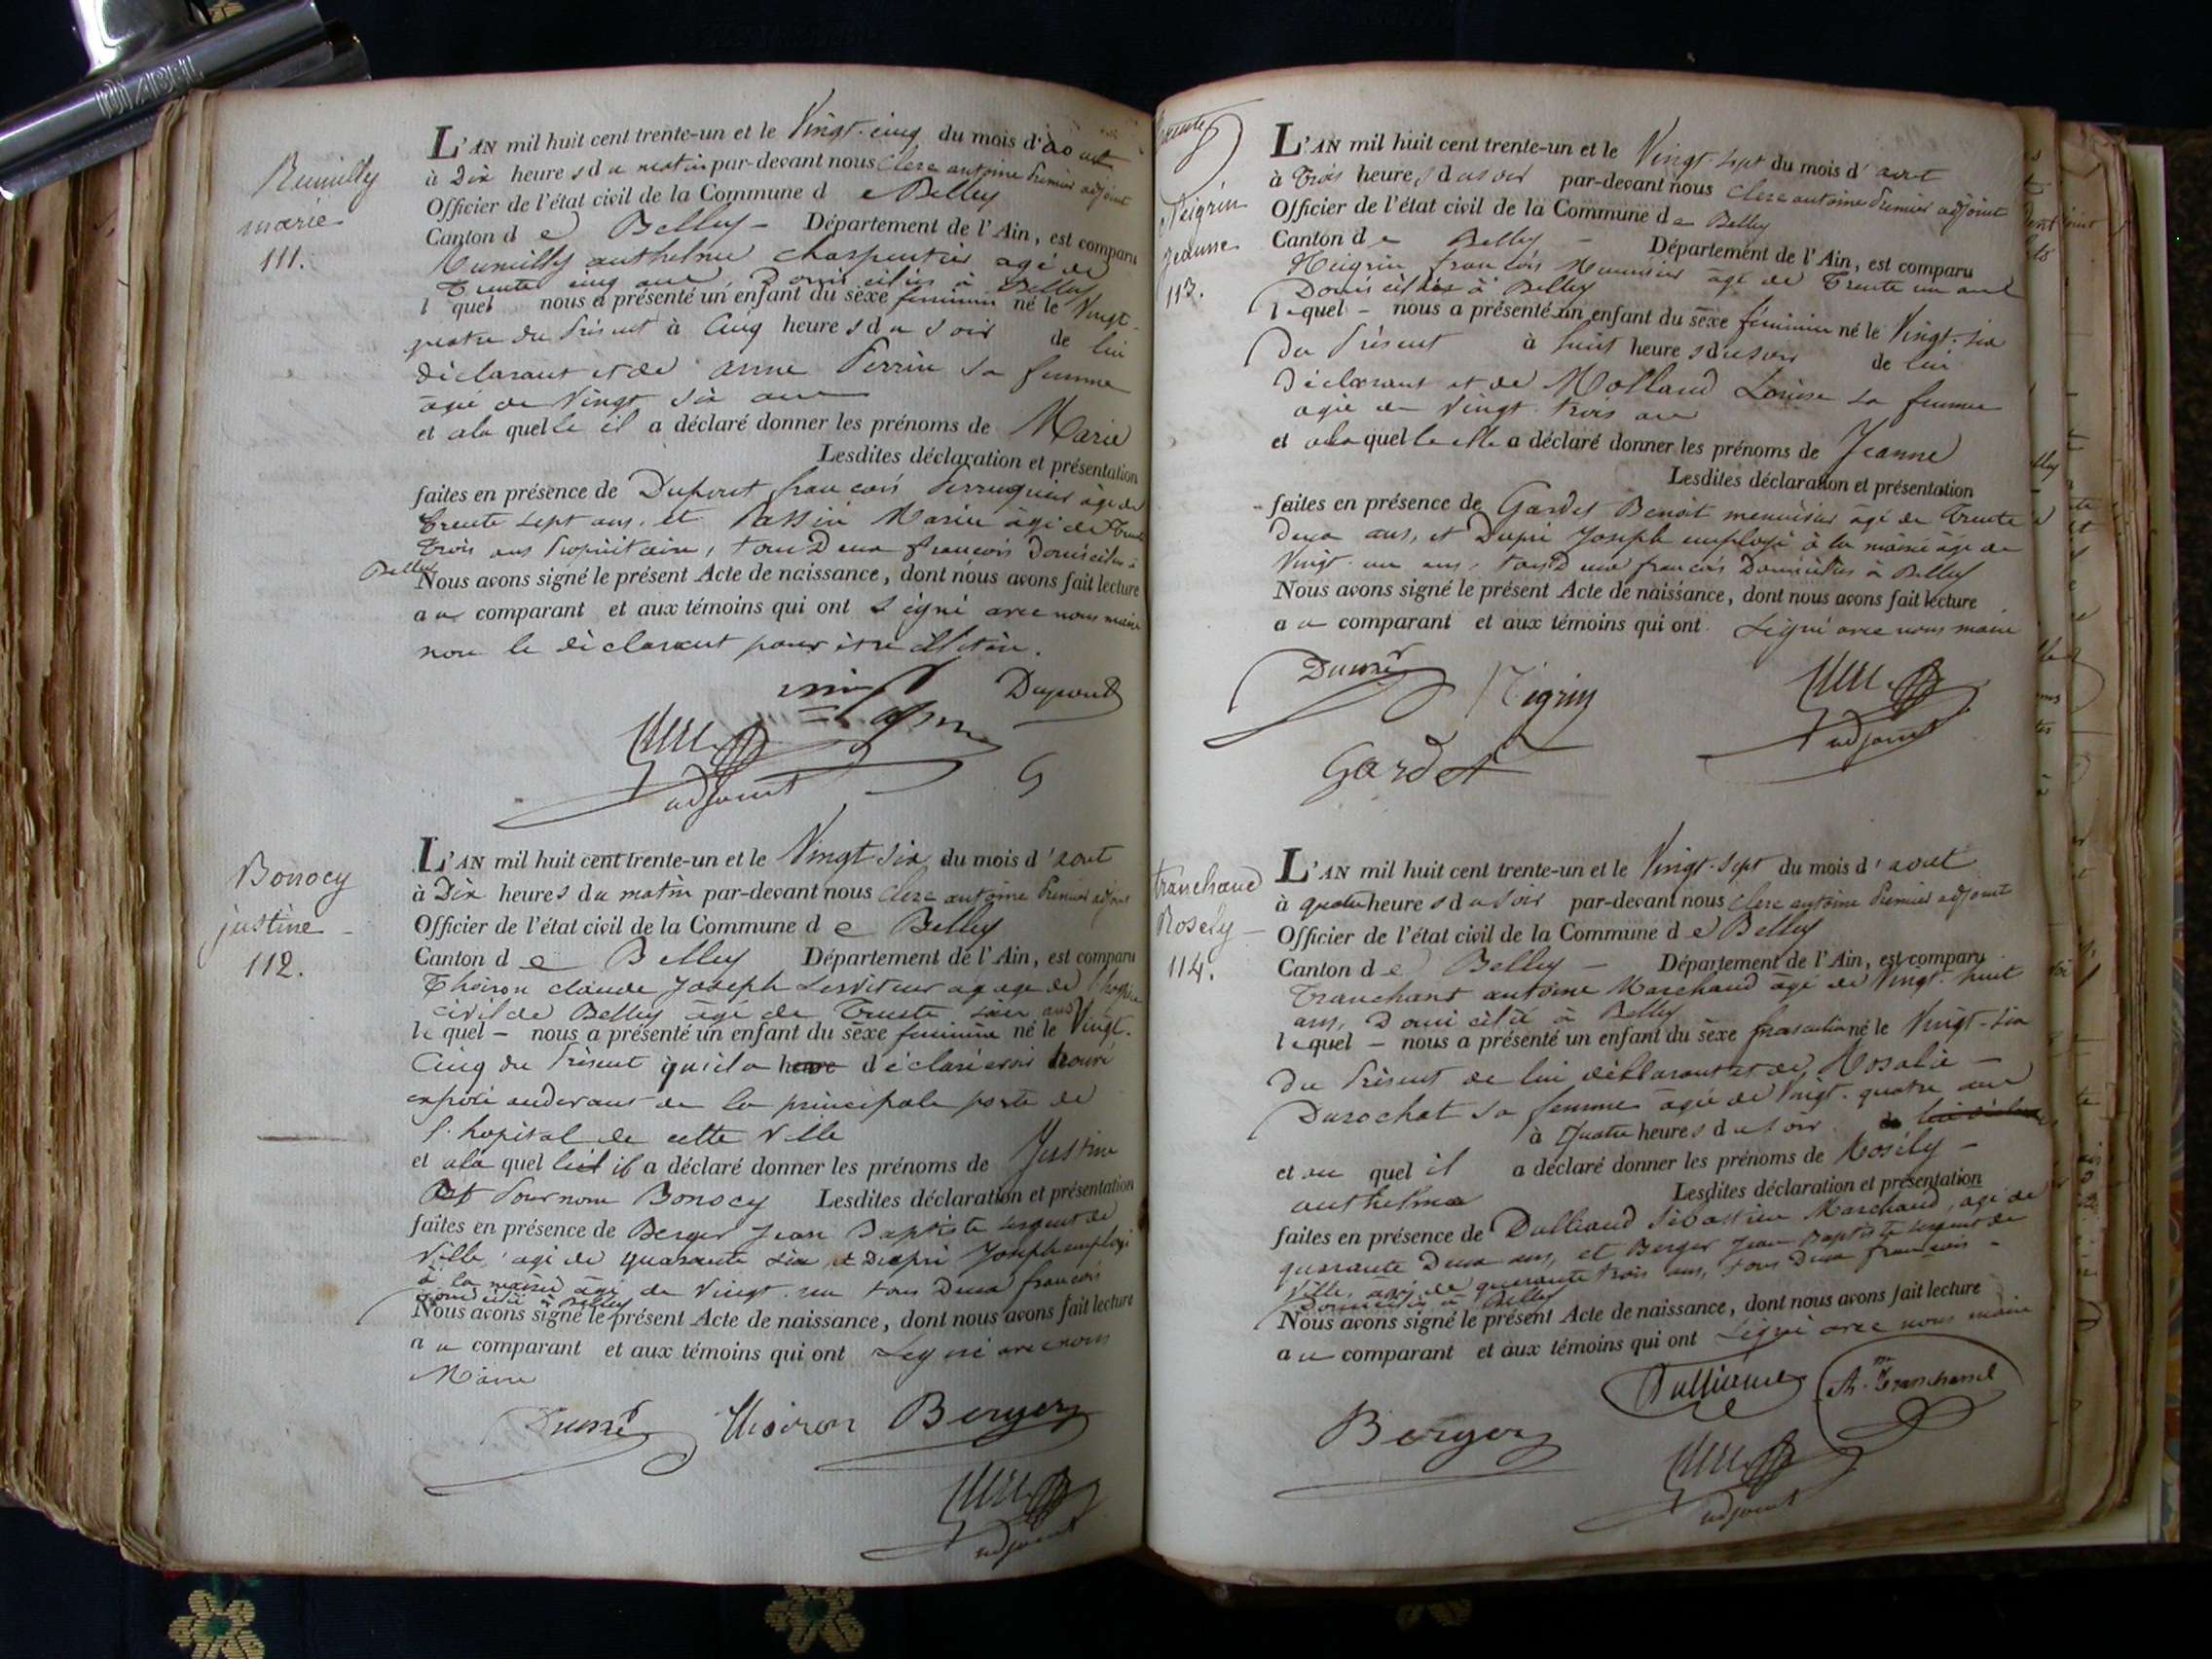 DIZABEL
Rumilly
marie
111.
L'AN mil huit cent trente-un et le Vingt-cinq du mois d'août
à Dix heures du matin par-devant nous Clerc antoine Premier adjoint
Officier de l'état civil de la Commune de Belley
Canton de Belley - Département de l'Ain, est comparu
Rumilly anthelme charpentier agé de
trente cinq ans, Domicilié à Belley
lequel nous a présenté un enfant du sexe feminin né le Vingt-
quatre du Présent à Cinq heures du soir de lui
déclarant et de anne Perrin sa femme
agée de Vingt six ans
et ala quelle il a déclaré donner les prénoms de Marie
Lesdites déclaration et présentation
faites en présence de Dupont françois Perruquier âgé de
trente sept ans, et Passin Marin âgé de trente
trois ans Propriétaire, tous Deux françois Domiciliés à
Belley
Nous avons signé le présent Acte de naissance, dont nous avons fait lecture
au comparant et aux témoins qui ont signé avec nous maire
non le déclarant pour être illitéré.
Dupont
Clerc
adjoint
Bonocy
justine -
112.
L'AN mil huit cent trente-un et le Vingt six du mois d'aout
à Dix heures du matin par-devant nous Clerc antoine Premier adjoint
Officier de l'état civil de la Commune de Belley
Canton de Belley Département de l'Ain, est comparu
Thoiron claude Joseph serviteur agage de l'hospice
civil de Belley âgé de Trente six ans
lequel - nous a présenté un enfant du sexe feminin né le Vingt-
Cinq du Présent qu'il a déclaré avoir trouvé
exposé audevant de la principale porte de
l'hopital de cette Ville
et ala quelle il a déclaré donner les prénoms de Justine
Pour nom Bonocy Lesdites déclaration et présentation
faites en présence de Berger Jean Baptiste sergent de
Ville, agé de quarante six, et Dupré Joseph employé
à la mairie âgé de Vingt-un tous Deux françois
domicilié à Belley
Nous avons signé le présent Acte de naissance, dont nous avons fait lecture
au comparant et aux témoins qui ont signé avec nous
Maire
Dupré Thoiron Berger
Clerc
adjoint
Neigrin
Jeanne
113.
L'AN mil huit cent trente-un et le Vingt-sept du mois d'aout
à trois heures du soir par-devant nous Clerc antoine Premier adjoint
Officier de l'état civil de la Commune de Belley
Canton de Belley - Département de l'Ain, est comparu
Neigrin françois Menuisier âgé de Trente un ans
Domicilié à Belley
lequel - nous a présenté un enfant du sexe féminin né le Vingt-six
du Présent à huit heures du soir de lui
déclarant et de Molland Louise sa femme
agée de Vingt-trois ans
et ala quelle elle a déclaré donner les prénoms de Jeanne
Lesdites déclaration et présentation
faites en présence de Gardet Benoit menuisier âgé de trente
deux ans, et Dupré Joseph employé à la mairie âgé de
Vingt-un ans, tous Deux françois Domiciliés à Belley
Nous avons signé le présent Acte de naissance, dont nous avons fait lecture
au comparant et aux témoins qui ont signé avec nous maire
Dupré Nigrin Clerc
adjoint
Gardet
tranchand
Rosely -
114.
L'AN mil huit cent trente-un et le Vingt-sept du mois d'aout
à quatre heures du soir par-devant nous Clerc antoine Premier adjoint
Officier de l'état civil de la Commune de Belley
Canton de Belley - Département de l'Ain, est comparu
Tranchant antoine Marchand agé de Vingt-huit
ans, Domicilié à Belley
lequel - nous a présenté un enfant du sexe masculin né le Vingt-six
du Présent de lui déclarant et de Rosalie -
Durochat sa femme agée de Vingt-quatre ans
à Quatre heures du soir de
et au quel il a déclaré donner les prénoms de Rosély -
anthelme Lesdites déclaration et présentation
faites en présence de Dalliand Sébastien Marchand, agé de
quarante Deux ans, et Berger Jean Baptiste sergent de
Ville, agé de quarante trois ans, tous Deux françois -
Domiciliés à Belley
Nous avons signé le présent Acte de naissance, dont nous avons fait lecture
au comparant et aux témoins qui ont signé avec nous maire
Dalliand Tranchand
Berger
Clerc
adjoint